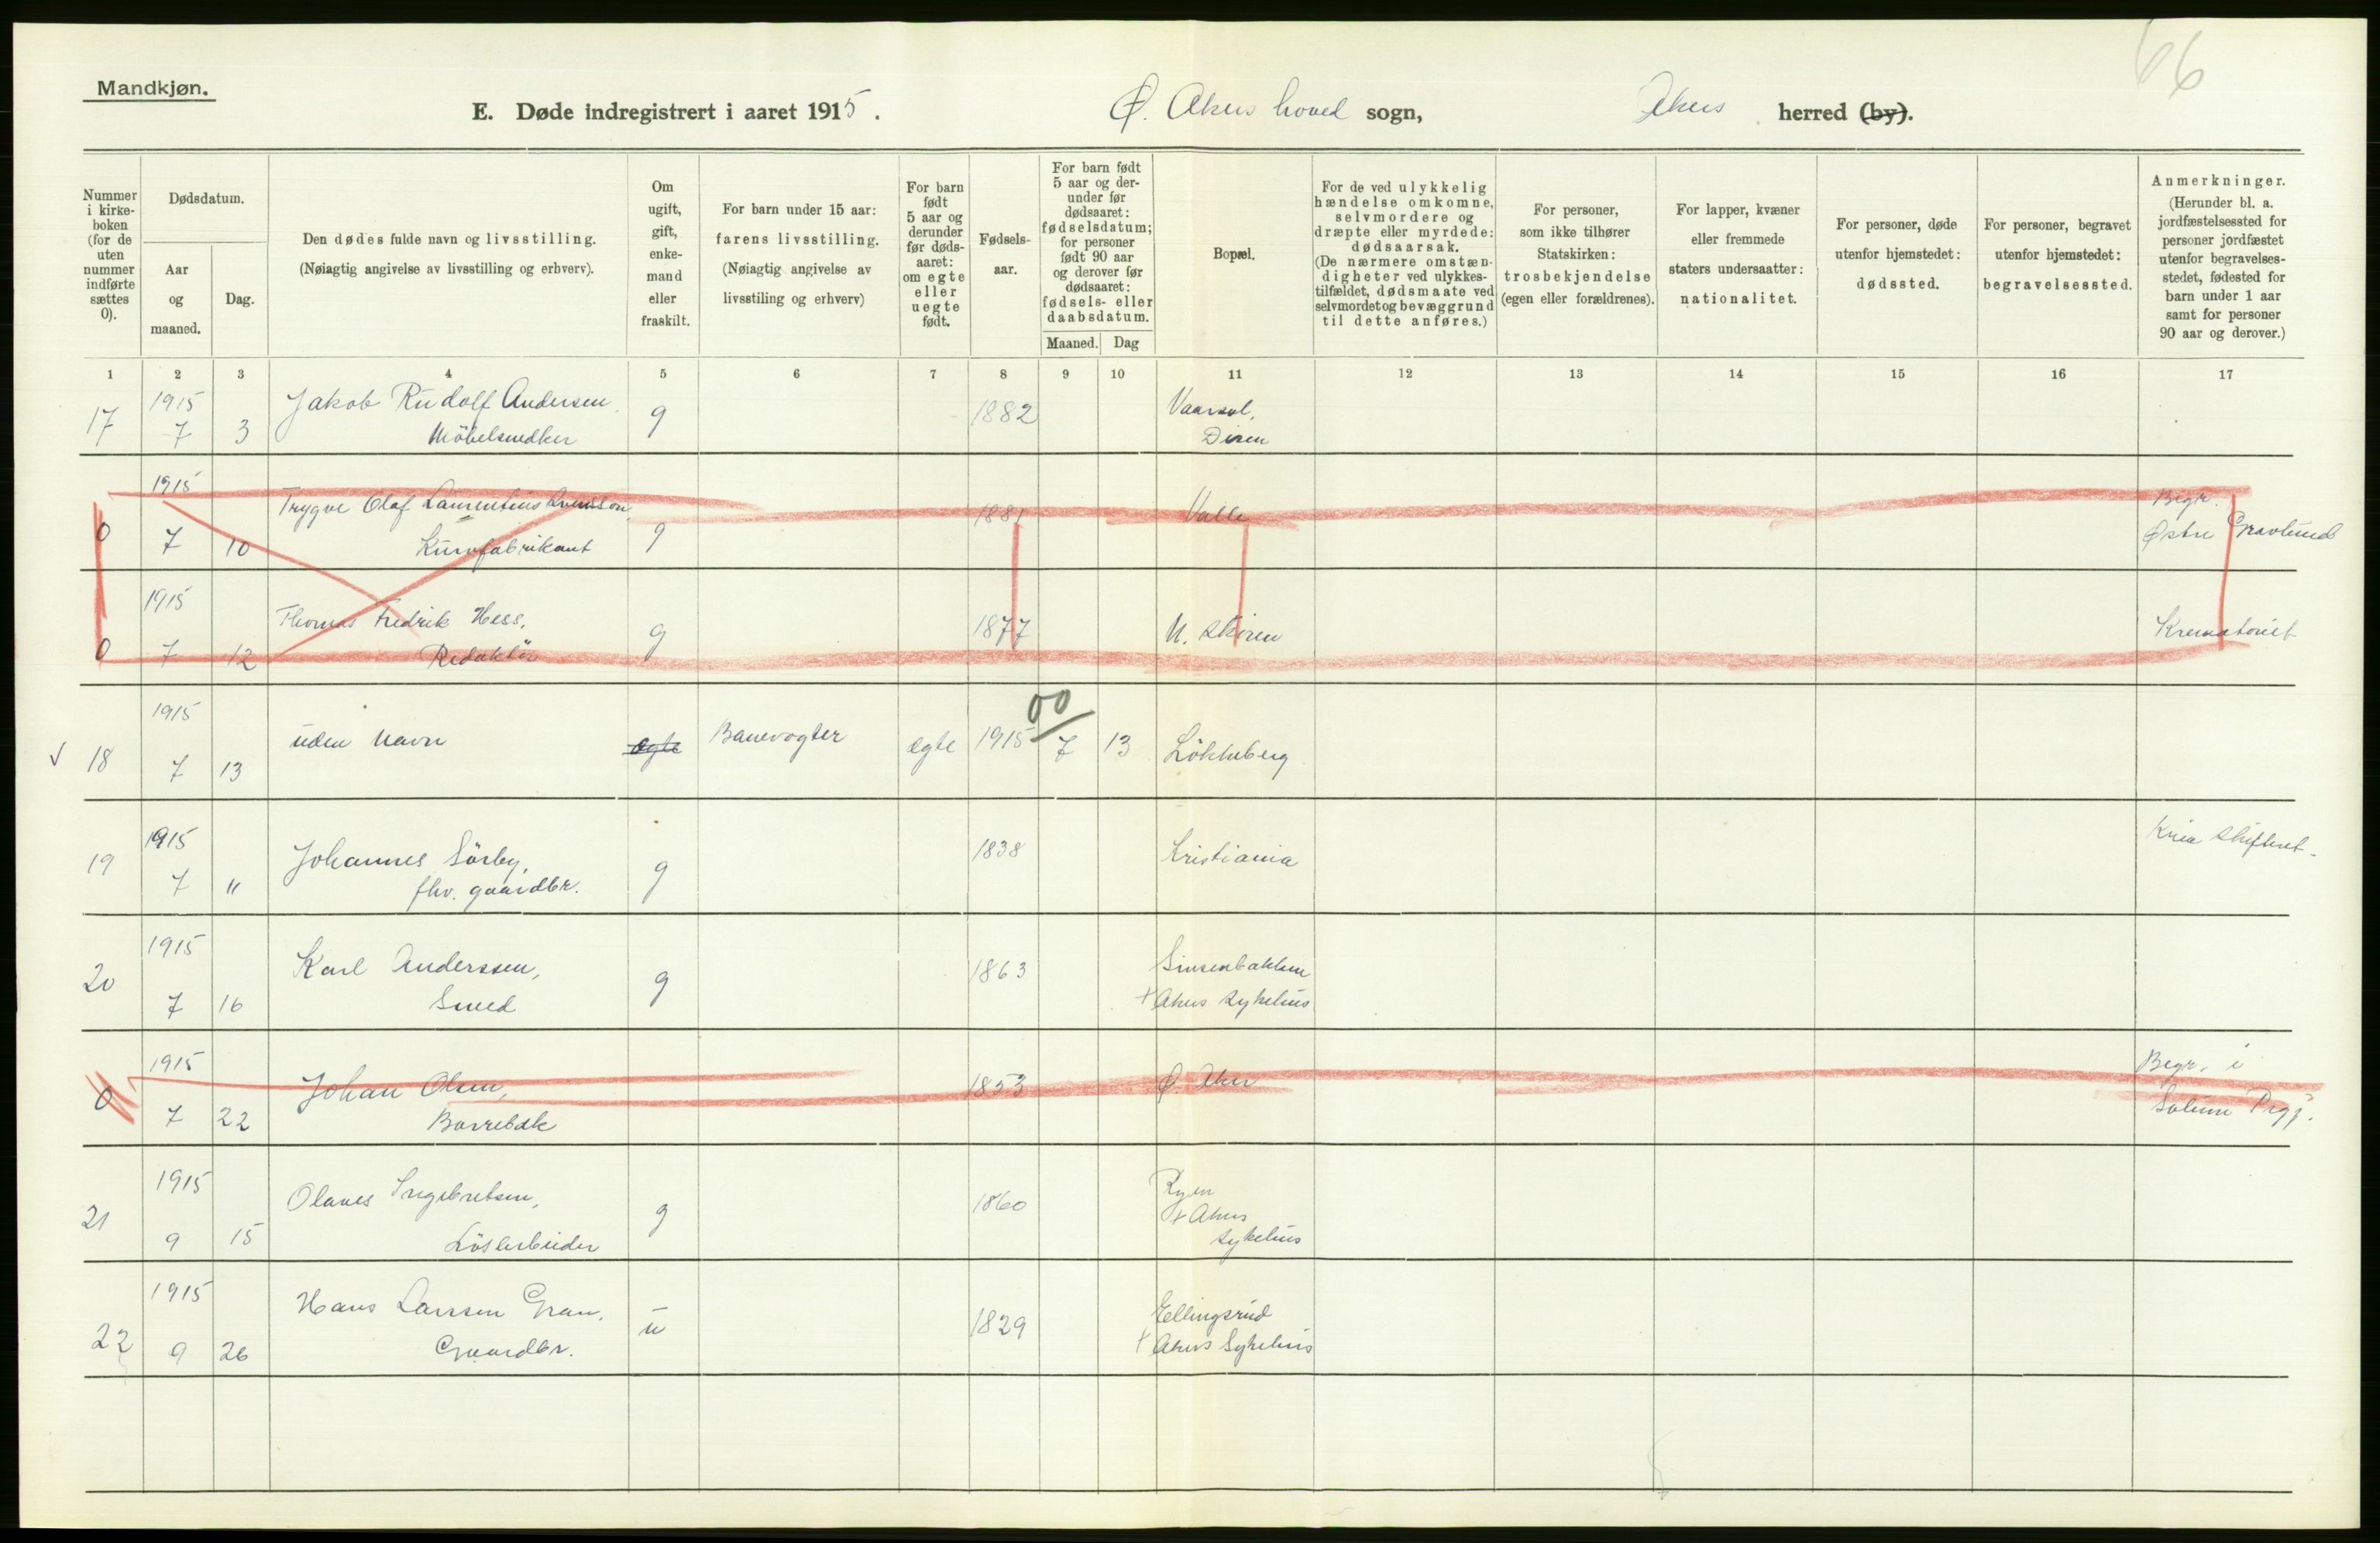 66
Mandkjøn.
E. Døde indregistrert i aaret 1915.
Ø. Akers hoved sogn,
Akers herred (by).
Nummer i kirke- boken (for de uten nummer indførte sættes 0).
Dødsdatum.
Aar og maaned.
Dag.
Den dødes fulde navn og livsstilling.
(Nøiagtig angivelse av livsstilling og erhverv).
Om ugift, gift, enke- mand eller fraskilt.
For barn under 15 aar:
farens livsstilling.
(Nøiagtig angivelse av
livsstiling og erhverv)
For barn født 5 aar og derunder før døds- aaret: om egte eller uegte født.
Fødsels- aar.
For barn født 5 aar og der- under før dødsaaret: fødselsdatum; for personer født 90 aar og derover før dødsaaret: fødsels- eller daabsdatum.
Maaned. Dag
Bopæl.
For de ved ulykkelig hændelse omkomne, selvmordere og dræpte eller myrdede: dødsaarsak. (De nærmere omstæn- digheter ved ulykkes- tilfældet, dødsmaate ved selvmordet og bevæggrund til dette anføres.)
For personer, som ikke tilhører Statskirken: trosbekjendelse (egen eller forældrenes).
For lapper, kvæner eller fremmede staters undersaatter: nationalitet.
For personer, døde utenfor hjemstedet: dødssted.
For personer, begravet utenfor hjemstedet: begravelsessted.
Anmerkninger. (Herunder bl. a. jordfæstelsessted for personer jordfæstet utenfor begravelses- stedet, fødested for barn under 1 aar samt for personer 90 aar og derover.)
1 2 3 4 5 6 7 8 9 10 11 12 13 14 15 16 17
1915 Jakob Rudolf Andersen Vaarsol,
17 7 3 Möbelsnedker g 1882 Disen
1915 Trygve Olaf Laurentius Svensson 1881 Valle Begr.
0 7 10 Kurvfabrikant g Østre Gravlund
1915 Thomas Fredrik Hess, 1877 N. Skøien Krematoriet
0 7 12 Redaktör g
1915 00
uden Navn egte Banevogter egte 1915 7 13 Lökkeberg
18 7 13
1915 Johannes Sörby, 1838 Kristiania Kria Skifteret
19 7 " fhv. gaardbr. g
1915 Karl Anderssen, 1863 Sinsenbakken
20 7 16 Smed g + Akers Sykehus
1915 Johan Olsen, 1853 Ø. Aker Begr. i
0 7 22 Solum Prgj.
1915 Olaves Ingebretsen, 1860 Ryen
21 9 15 Lösarbeider g + Akers
sykehus
1915 Hans Larssen Gran, 1829 Ellingsrud
22 9 26 Gaardbr. u + Akers Sykehus